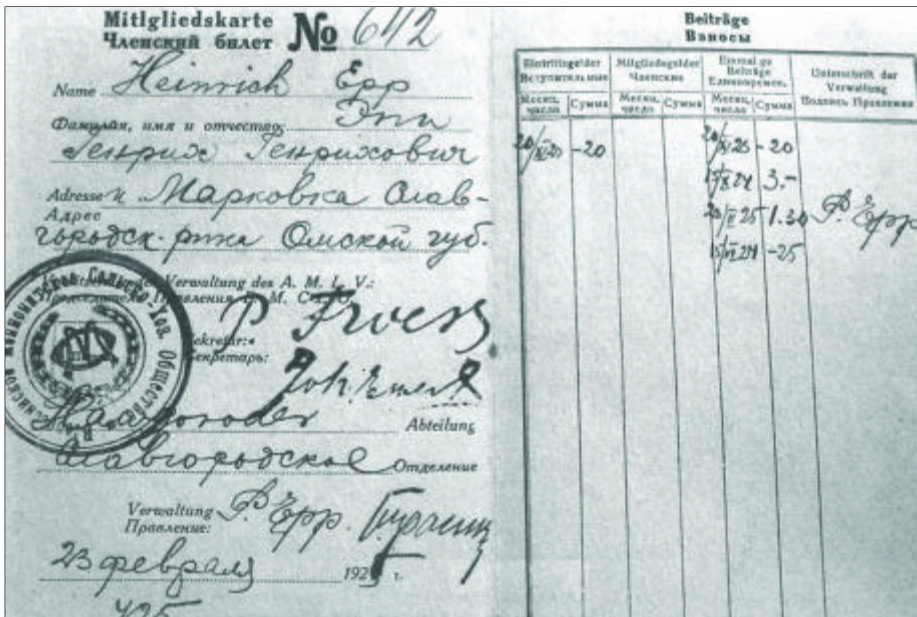 Mitlgliedskarte
Членский билет
№ 6112
Name Heinrich Epp
Фамилия, имя и отчество: Эпп
Генрих Генрихович
Adresse Марковка Слав-
Адрес
городск. р-на Омской губ.
Verwaltung des A. M. L. V.:
Правления
P Froese
Sekretär:
Секретарь:
Joh.
Abteilung
Славгородское Отделение
Verwaltung P. Epp.
Правление:
23 февраля 1925 г.
425
Общество
Beiträge
Взносы
Eintrittsgelder
Вступительные
Mitgliedsgelder
Членские
Einmalige
Beiträge
Единовремен.
Unterschrift der
Verwaltung
Подпись Правления
Месяц, число Сумма Месяц, число Сумма Месяц, число Сумма
-20 -20
3.-
25 1.30 P. Epp
-25